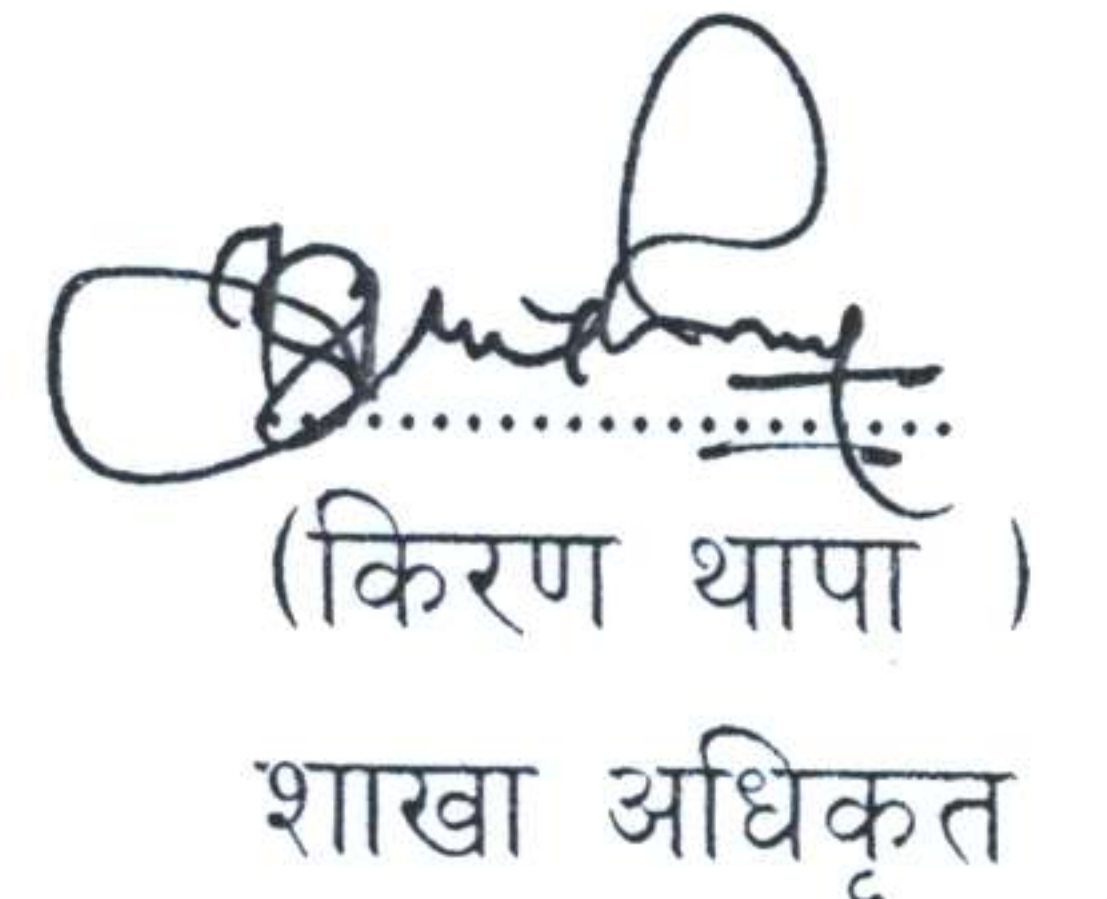 ..................
(किरण थापा )
शाखा अधिकृत